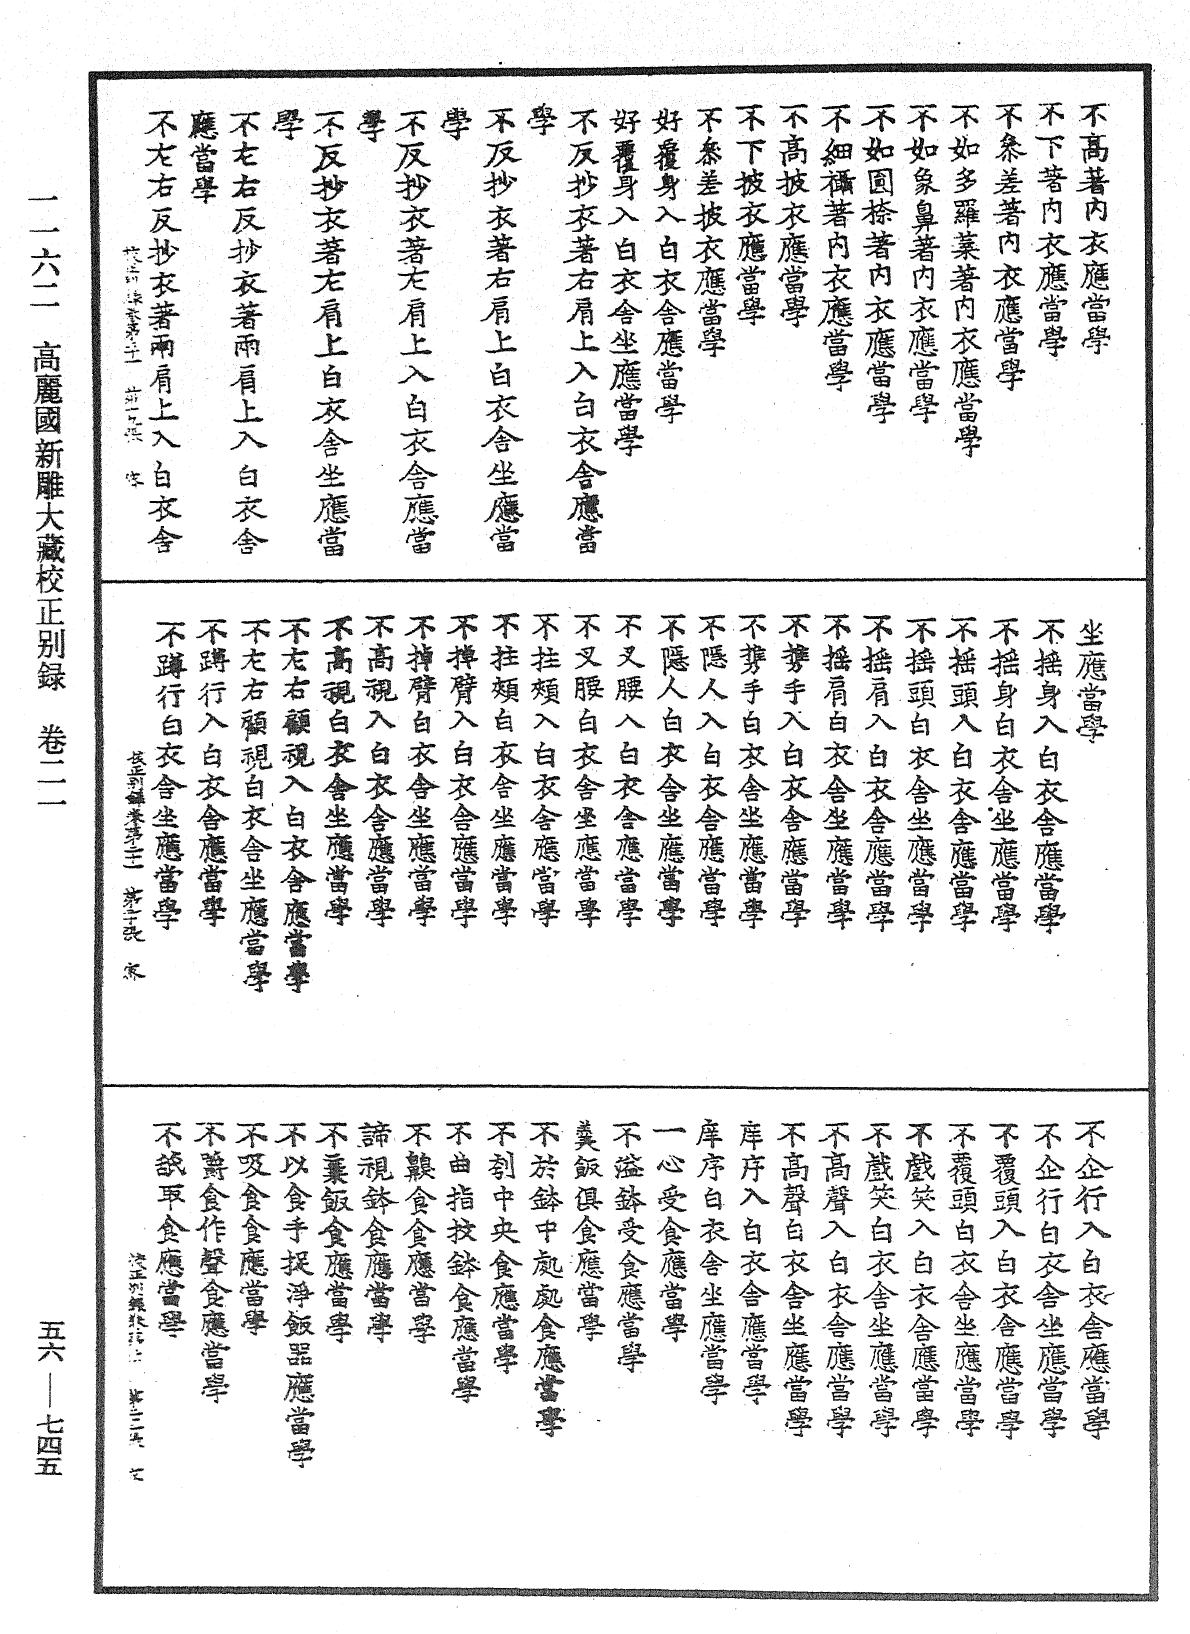 不高著內衣應當學
不下著內衣應當學
不叅差著內衣應當學
不如多羅葉著內衣應當學
不如象鼻著內衣應當學
不如圎㮈著內衣應當學
不細襵著內衣應當學
不高披衣應當學
不下披衣應當學
不叅差披衣應當學
好覆身入白衣舎應當學
好覆身入白衣舎坐應當學
不反抄衣著右肩上入白衣舎應當
學
不反抄衣著右肩上白衣舎坐應當
學
不反抄衣著左肩上入白衣舎應當
學
不反抄衣著左肩上白衣舎坐應當
學
不左右反抄衣著兩肩上入白衣舎
應當學
不左右反抄衣著兩肩上入白衣舎
坐應當學
不搖身入白衣舎應當學
不搖身白衣舎坐應當學
不搖頭入白衣舎應當學
不搖頭白衣舎坐應當學
不搖肩入白衣舎應當學
不搖肩白衣舎坐應當學
不携手入白衣舎應當學
不携手白衣舎坐應當學
不隱人入白衣舎應當學
不隱人白衣舎坐應當學
不叉腰入白衣舎應當學
不叉腰白衣舎坐應當學
不拄頰入白衣舎應當學
不拄頰白衣舎坐應當學
不掉臂入白衣舎應當學
不掉臂白衣舎坐應當學
不高視入白衣舎應當學
不高視白衣舎坐應當學
不左右顧視入白衣舎應當學
不左右顧視白衣舎坐應當學
不蹲行入白衣舎應當學
不蹲行白衣舎坐應當學
校正別録卷第二十一 第二十張 家
不企行入白衣舎應當學
不企行白衣舎坐應當學
不覆頭入白衣舎應當學
不覆頭白衣舎坐應當學
不戲笑入白衣舎應當學
不戲笑白衣舎坐應當學
不高聲入白衣舎應當學
不高聲白衣舎坐應當學
庠序入白衣舎應當學
庠序白衣舎坐應當學
一心受食應當學
不溢鉢受食應當學
羹飯俱食應當學
不於鉢中處處食應當學
不刳中央食應當學
不曲指抆鉢食應當學
不齅食食應當學
諦視鉢食應當學
不棄飯食應當學
不以食手捉淨飯器應當學
不吸食食應當學
不嚼食作聲食應當學
不䑛取食應當學
一一六二 高麗國新雕大藏校正别録 卷二一
五六——七四五